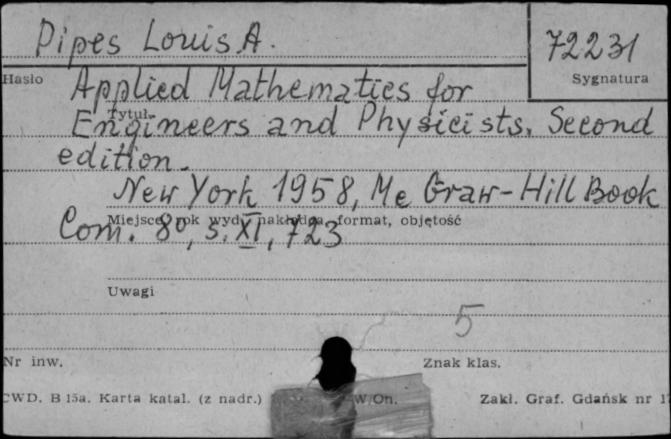 Pipes Louis A.
72231
Hasło
Sygnatura
Applied Mathematics for
Tytuł
Engineers and Physicists. Second
edition.
New York 1958, Mc Graw-Hill Book
Miejsce, rok wyd., nakładca, format, objętość
Com. 8º, s. XI, 723
Uwagi
5
Nr inw.
Znak klas.
CWD. B 15a. Karta katal. (z nadr.)
W/On.
Zakł. Graf. Gdańsk nr